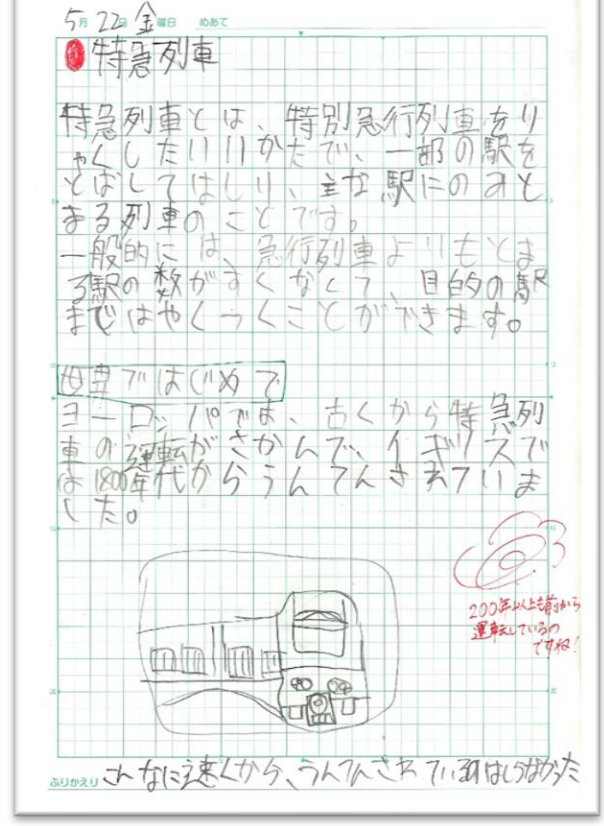 5月22日 金曜日 めあて
特急列車
特急列車とは、特別急行列車をり
ゃくしたいいかたで、一部の駅を
とばしてはしり、主な駅にのみと
まる列車のことです。
一般的には、急行列車よりもとま
る駅の数がすくなくて、目的の駅
まではやくつくことができます。
世界ではじめて
ヨーロッパでは、古くから特急列
車の運転がさかんで、イギリスで
は1800年代からうんてんされていま
した。
200年以上も前から
運転しているの
ですね!
ふりかえり こんなに速くから、うんてんされているのはしらなかった